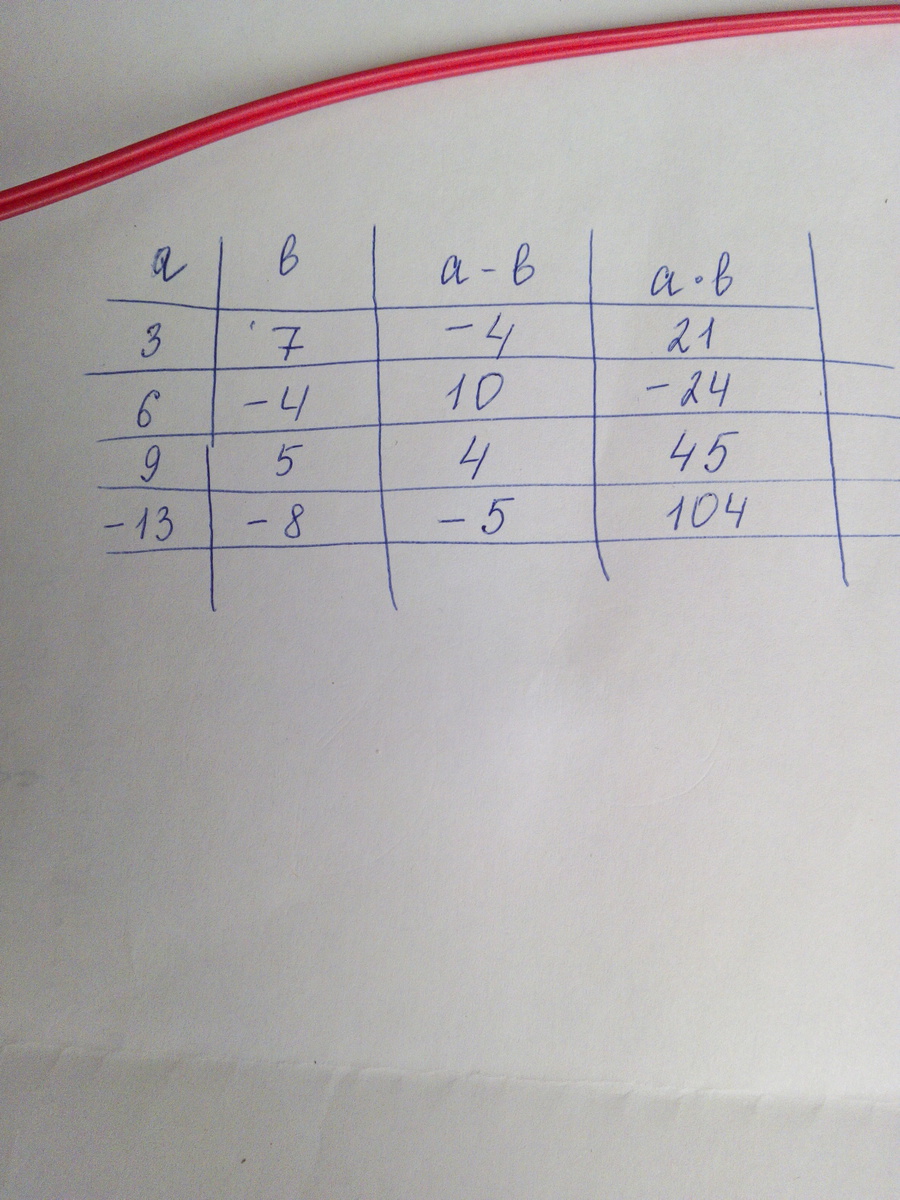 а в а - в а · в
3 7 -4 21
6 -4 10 -24
9 5 4 45
-13 -8 -5 104